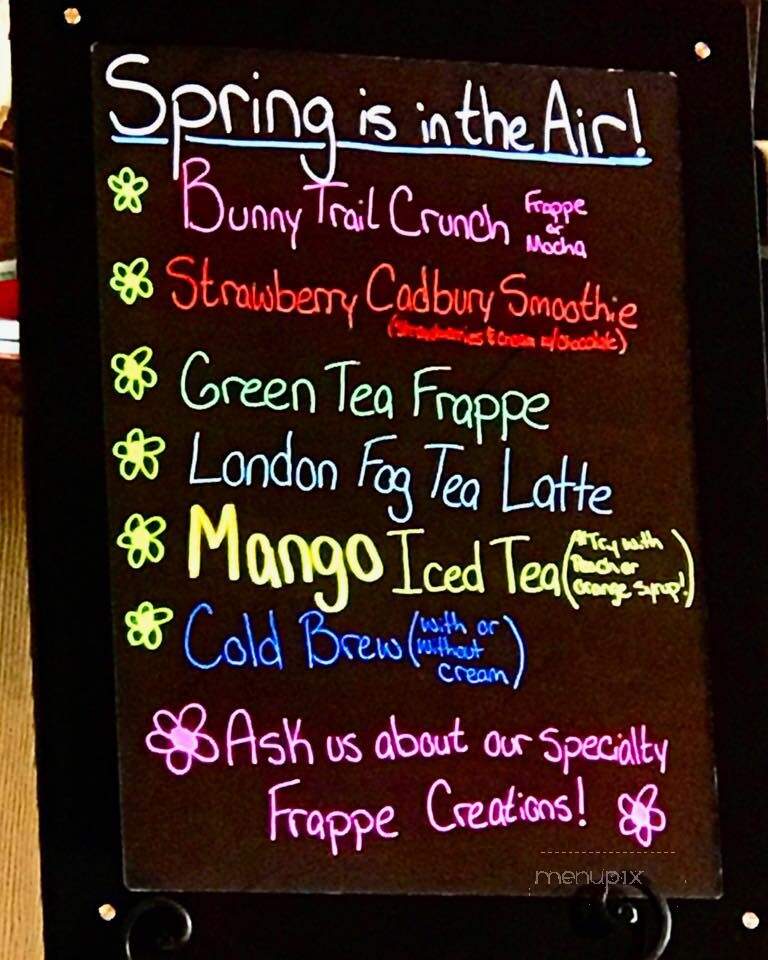 Spring is in the Air!
Bunny Trail Crunch Frappe
or
Mocha
Strawberry Cadbury Smoothie
(Strawberries & Cream w/chocolate)
Green Tea Frappe
London Fog Tea Latte
Mango Iced Tea (Try with
Peach or
orange syrup!)
Cold Brew (with or
without
cream)
Ask us about our specialty
Frappe Creations!
menupix